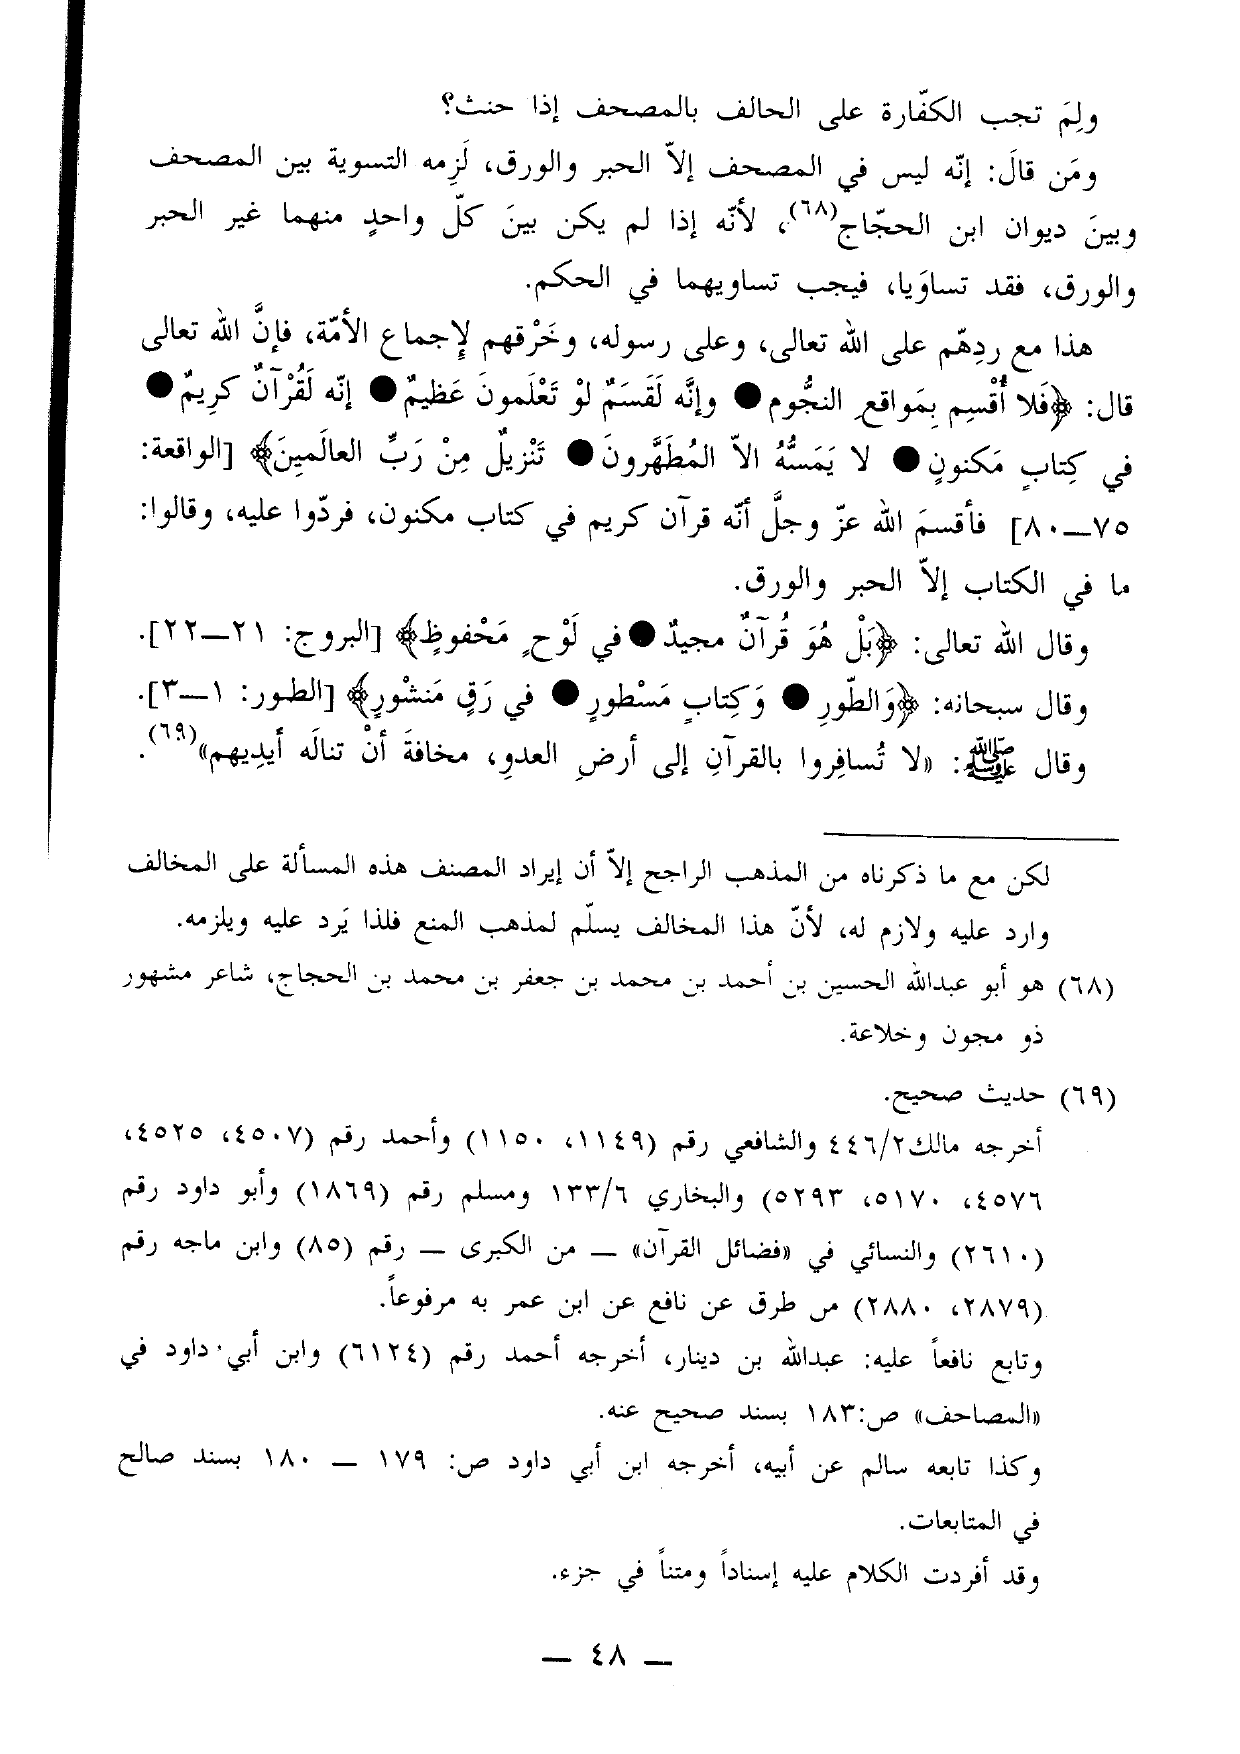 ولِمَ تجب الكفّارة على الحالف بالمصحف إذا حنث؟
ومَن قالَ: إنّه ليس في المصحف إلاّ الحبر والورق، لَزِمه التسوية بين المصحف
وبينَ ديوان ابن الحجّاج(٦٨)، لأنّه إذا لم يكن بينَ كلّ واحدٍ منهما غير الحبر
والورق، فقد تساوَيا، فيجب تساويهما في الحكم.
هذا مع ردِهّم على الله تعالى، وعلى رسوله، وخَرْقهم لإِجماع الأمّة، فإنَّ الله تعالى
قال: ﴿فَلا أُقْسِم بِمَواقعِ النجُّوم ● وإنَّه لَقَسَمٌ لوْ تَعْلَمونَ عَظِيمٌ ● إنّه لَقُرْآنٌ كرِيمٌ ●
في كِتابٍ مَكنونٍ ● لا يَمَسُّهُ الاّ المُطَهَّرونَ ● تَنْزيلٌ مِنْ رَبِّ العالَمينَ﴾ [الواقعة:
٧٥ــ٨٠] فأقسمَ الله عزّ وجلَّ أنّه قرآن كريم في كتاب مكنون، فردّوا عليه، وقالوا:
ما في الكتاب إلاّ الحبر والورق.
وقال الله تعالى: ﴿بَلْ هُوَ قُرآنٌ مجيدٌ ● في لَوْحٍ مَحْفوظٍ﴾ [البروج: ٢١ــ٢٢].
وقال سبحانه: ﴿وَالطّورِ ● وَكِتابٍ مَسْطورٍ ● في رَقٍ مَنشْورٍ﴾ [الطور: ١ــ٣].
وقال ﷺ: «لا تُسافِروا بالقرآنِ إلى أرضِ العدوِ، مخافةَ أنْ تنالَه أيدِيهم»(٦٩).
لكن مع ما ذكرناه من المذهب الراجح إلاّ أن إيراد المصنف هذه المسألة على المخالف
وارد عليه ولازم له، لأنّ هذا المخالف يسلّم لمذهب المنع فلذا يَرد عليه ويلزمه.
(٦٨) هو أبو عبدالله الحسين بن أحمد بن محمد بن جعفر بن محمد بن الحجاج، شاعر مشهور
ذو مجون وخلاعة.
(٦٩) حديث صحيح.
أخرجه مالك ٤٤٦/٢ والشافعي رقم (١١٤٩، ١١٥٠) وأحمد رقم (٤٥٠٧، ٤٥٢٥،
٤٥٧٦، ٥١٧٠، ٥٢٩٣) والبخاري ١٣٣/٦ ومسلم رقم (١٨٦٩) وأبو داود رقم
(٢٦١٠) والنسائي في «فضائل القرآن» ــ من الكبرى ــ رقم (٨٥) وابن ماجه رقم
(٢٨٧٩، ٢٨٨٠) من طرق عن نافع عن ابن عمر به مرفوعاً.
وتابع نافعاً عليه: عبدالله بن دينار، أخرجه أحمد رقم (٦١٢٤) وابن أبي داود في
«المصاحف» ص:١٨٣ بسند صحيح عنه.
وكذا تابعه سالم عن أبيه، أخرجه ابن أبي داود ص: ١٧٩ ــ ١٨٠ بسند صالح
في المتابعات.
وقد أفردت الكلام عليه إسناداً ومتناً في جزء.
ــ ٤٨ ــ